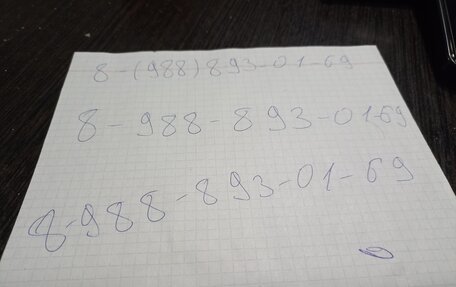 8-(988)893-01-69
8-988-893-01-69
8-988-893-01-69